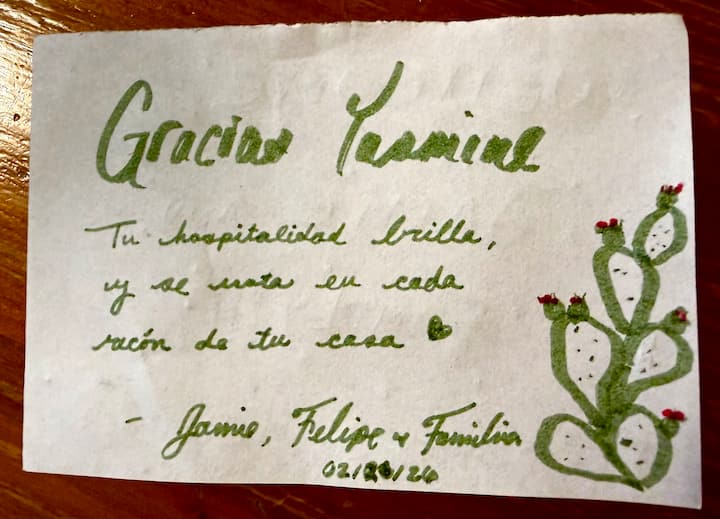 Gracias Yasmine
Tu hospitalidad brilla,
y se nota en cada
racón de tu casa
- Jamie, Felipe y Familia
02/20/26